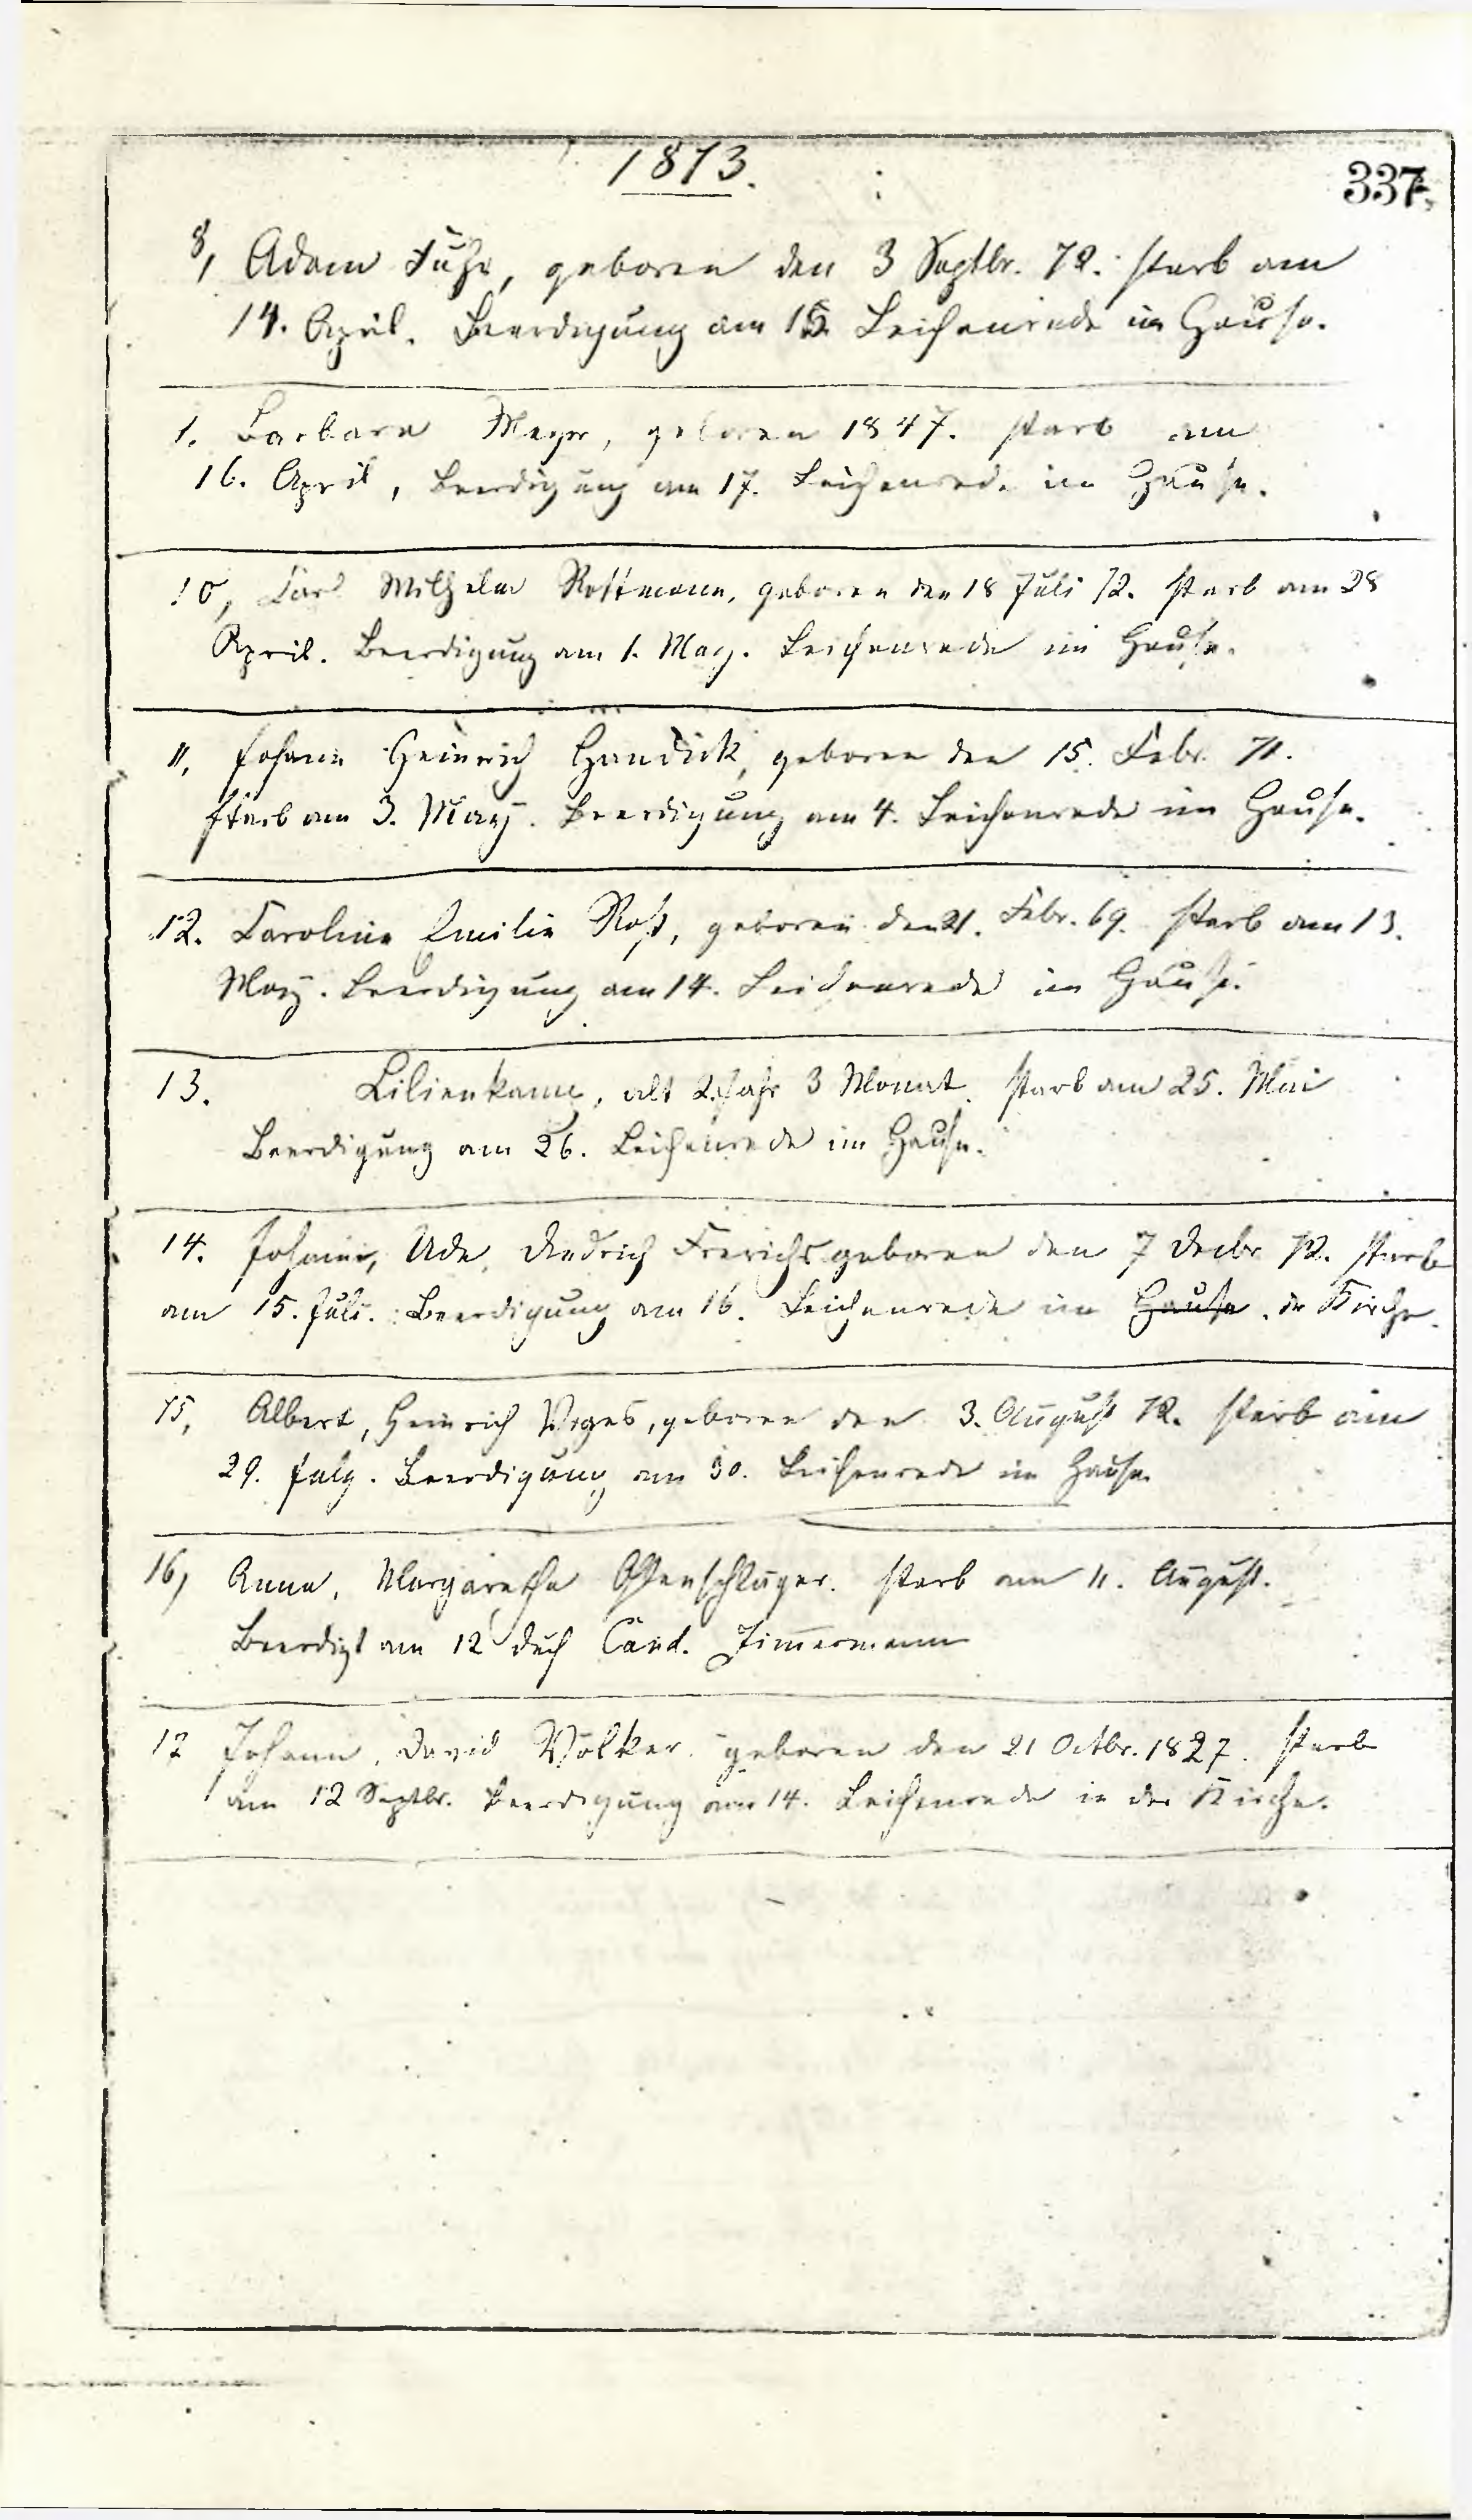 1873.
337.
8, Adam Fuhr, geboren den 3 Septbr. 72. starb am
14. April. Beerdigung am 15. Leichenrede im Hause.
1. Barbara Meyer, geboren 1847. starb am
16. April, Beerdigung am 17. Leichenrede im Hause.
10, Carl Wilhelm Rottmann, geboren den 18 Juli 72. starb am 28
April. Beerdigung am 1. May. Leichenrede im Hause.
11, Johann Heinrich Handick, geboren den 15. Febr. 71.
starb am 3. May. Beerdigung am 4. Leichenrede im Hause.
12. Caroline Emilie Roß, geboren den 21. Febr. 69. starb am 13.
May. Beerdigung am 14. Leichenrede im Hause.
13. Lilienkamp, alt 2 Jahr 3 Monat. starb am 25. Mai
Beerdigung am 26. Leichenrede im Hause.
14. Johann, Ude, Diedrich Frerichs geboren den 7 Decbr 72. starb
am 15. Juli. Beerdigung am 16. Leichenrede im Hause. der Kirche.
15, Albert, Heinrich Voges, geboren den 3. August 72. starb am
29. July. Beerdigung am 30. Leichenrede im Hause.
16, Anna, Margaretha starb am 11. August.
Beerdigt am 12 durch Cand. Zimmermann
17 Johann, David Völker. geboren den 21 Octbr. 1827. starb
am 12 Septbr. Beerdigung am 14. Leichenrede in der Kirche.